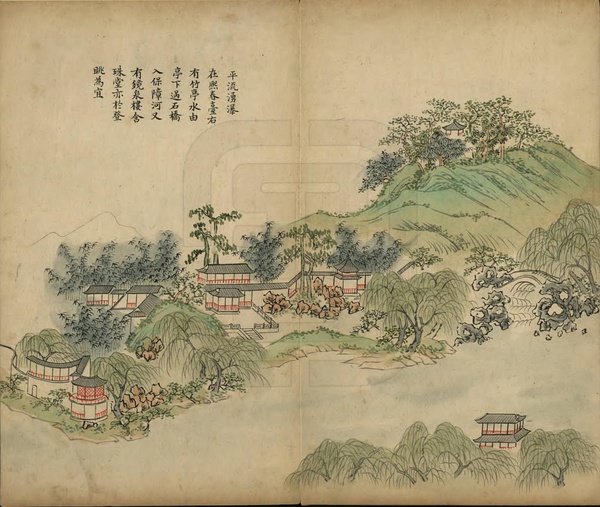 平流湧瀑
在熙春臺右
有竹亭水由
亭下過石橋
入保障河又
有鏡泉樓含
珠堂亦於登
眺為宜